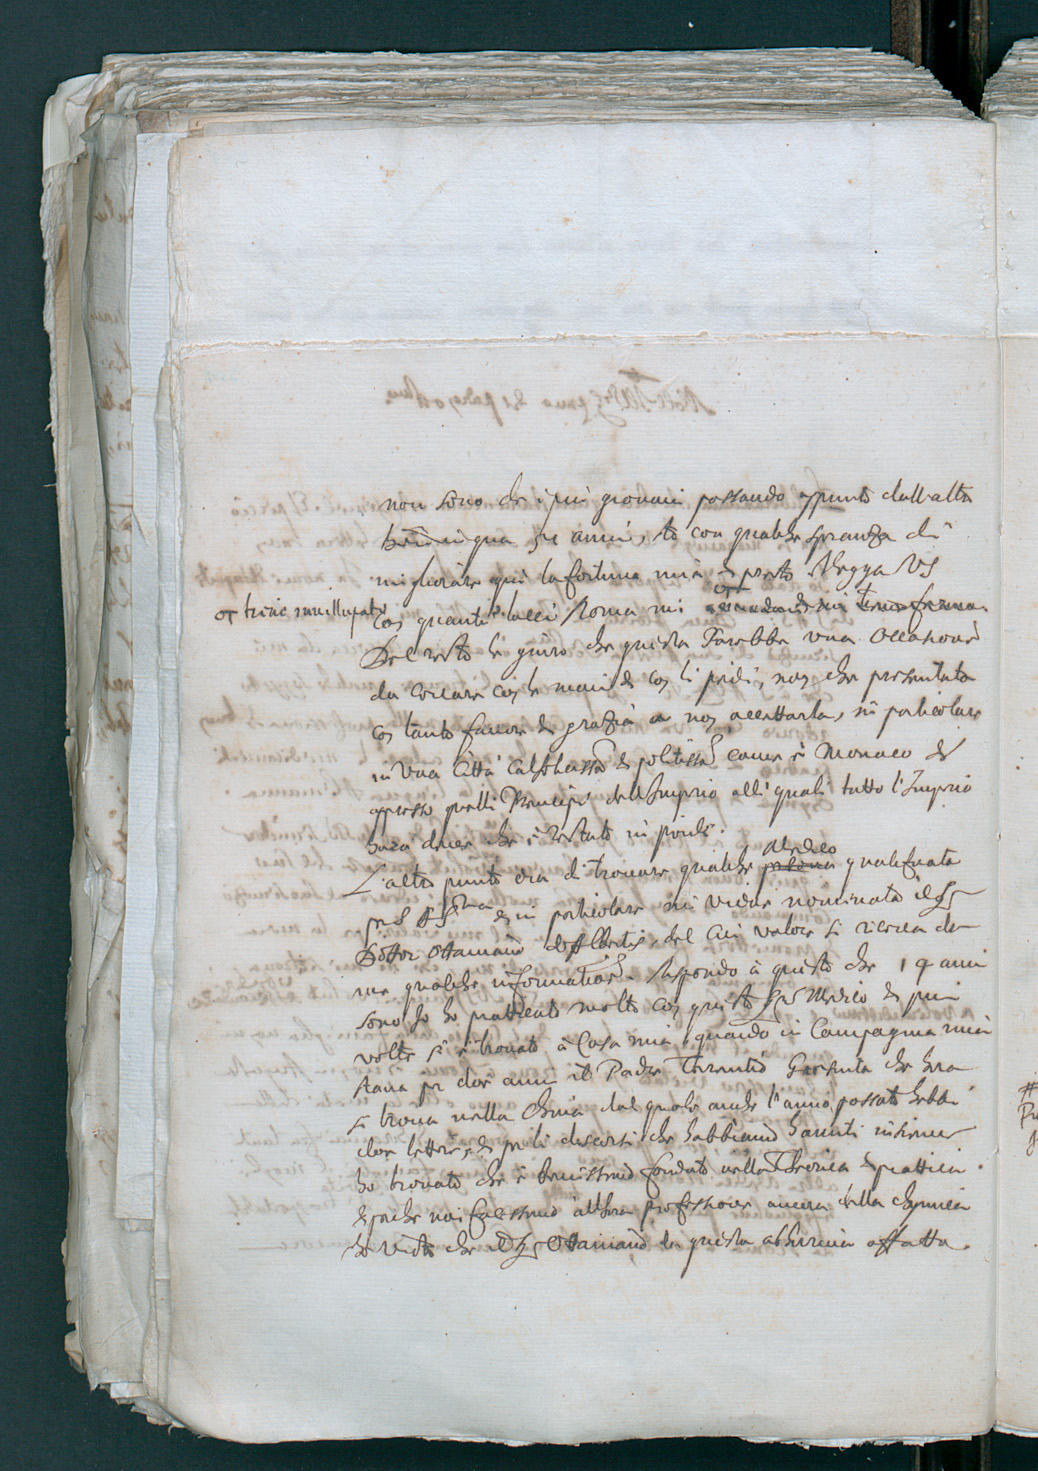 non sono che i più giovani passando appunto dall'alta
qua anni, sto con qualche speranza di
migliorare qui la fortuna mia e presto Vegga VS
or tiene inviluppato
con quanti lacci Roma mi
Del resto le giuro che questa sarebbe una occasione
da cercare con le mani e con li piedi, non che presentata
con tanto favore e grazia a non accettarla, in particolare
in una Città e politissa come è Monaco e
appresso quelli Principi dell'Imperio alli quali tutto l'Imperio
che è restato in piedi.
L'altro punto era di trovare qualche Medico qualificato
per S A S.ma e in particolare mi vider nominato il Sr
Dottor Ottaviano del cui valore si ricerca da
me qualche informatione. Rispondo à questo che 14 anni
sono Io ho pratticato molto con questo Sr Medico e più
volte si è trovato à Casa mia quando in Campagna mia
stava per doi anni il Padre Terentio Giesuita che hora
si trova nella China dal quale anche l'anno passato hebbi
doe lettere, e per li discorsi che habbiamo havuti insieme
ho trovato che è benissimo fondato nella Theorica e prattica.
e perche noi facessimo all'hora professione ancora della chymica
ho visto che il Sr Ottaviano da questa abhorriva affatto.